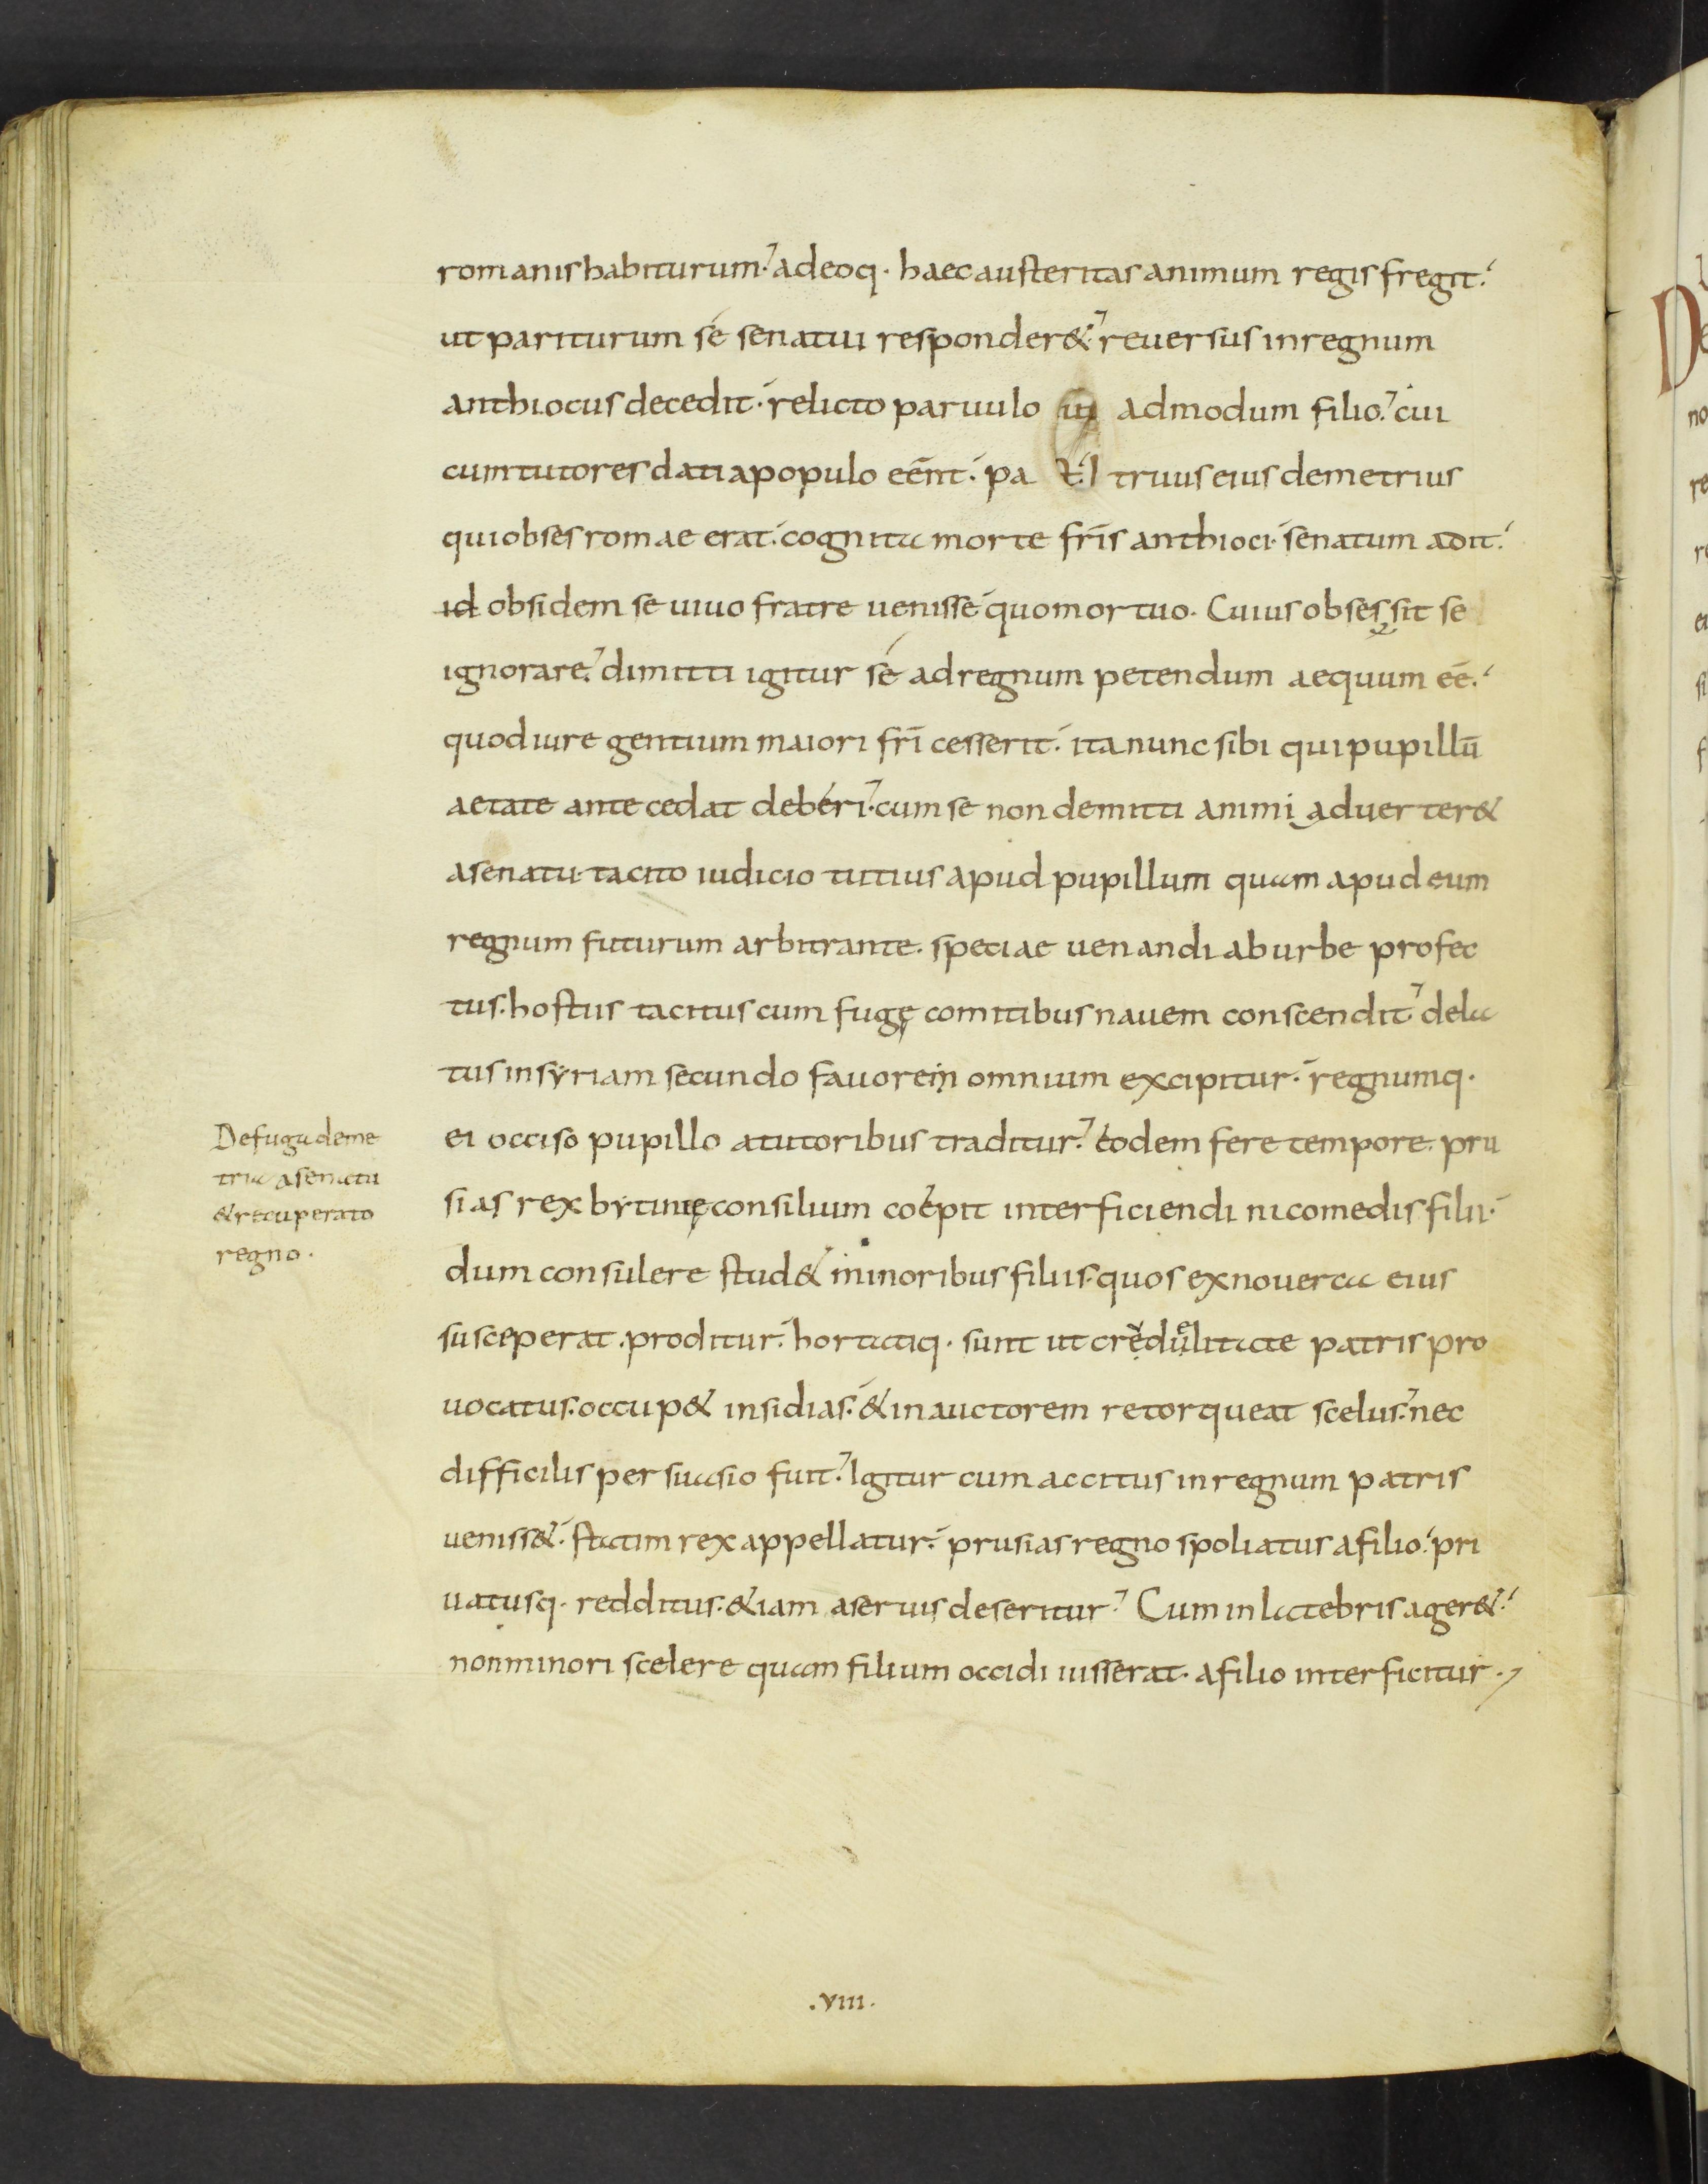 romanis habiturum. adeoq. haec austeritas animum regis fregit.
ut pariturum sé senatui responder& reuersus in regnum
anthiocus decedit. relicto paruulo admodum filio. cui
cum tutores dati a populo eēnt. pa truus eius demetrius
qui obses romae erat. cognita morte fr̄is anthioci senatum adit.
id obsidem se uiuo fratre uenisse quo mortuo. Cuius obses sit se
ignorare. dimitti igitur sé ad regnum petendum aequum eē.
quod iure gentium maiori fr̄i cesserit. ita nunc sibi qui pupillū
aetate ante cedat deberi. cum se non demitti animi aduerter&
a senatu tacito iudicio tutius apud pupillum quam apud eum
regnum futurum arbitrante. speciae uenandi ab urbe profec
tus. hostiis tacitus cum fugę comitibus nauem conscendit dela
tus in syriam secundo fauorem omnium excipitur. regnumq.
ei occiso pupillo a tutoribus traditur. eodem fere tempore. pru
sias rex bytinię consilium coepit interficiendi nicomedis filii.
dum consulere stud& minoribus filiis. quos ex nouerca eius
susceperat. proditur. hortatiq. sunt ut credulitate patris pro
uocatus. occup& insidias. & in auctorem retorqueat scelus. nec
difficilis persuasio fuit. Igitur cum accitus in regnum patris
ueniss&. statim rex appellatur. prusias regno spoliatus a filio. pri
uatusq. redditus. &iam a seruis deseritur. Cum in latebris ager&.
non minori scelere quam filium occidi iusserat. a filio interficitur.
De fuga deme
trii a senatu
& recuperato
regno.
.VIII.